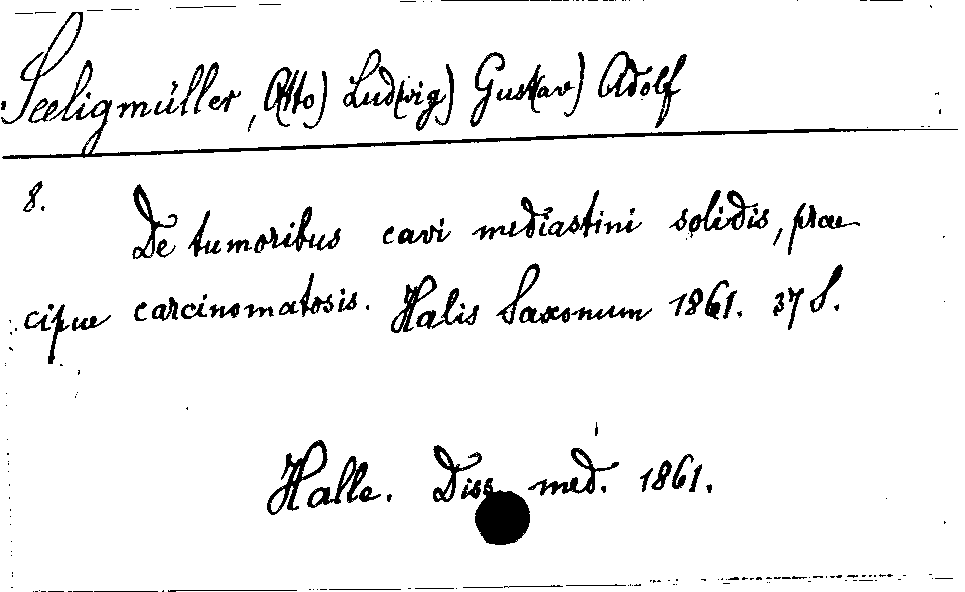 Seeligmüller, O(tto) Lud(wig) Gust(av) Adolf
8. De tumoribus cavi mediastini solidis, prae
cipue carcinomatosis. Halis Saxonum 1861. 37 S.
Halle. Diss. med. 1861.